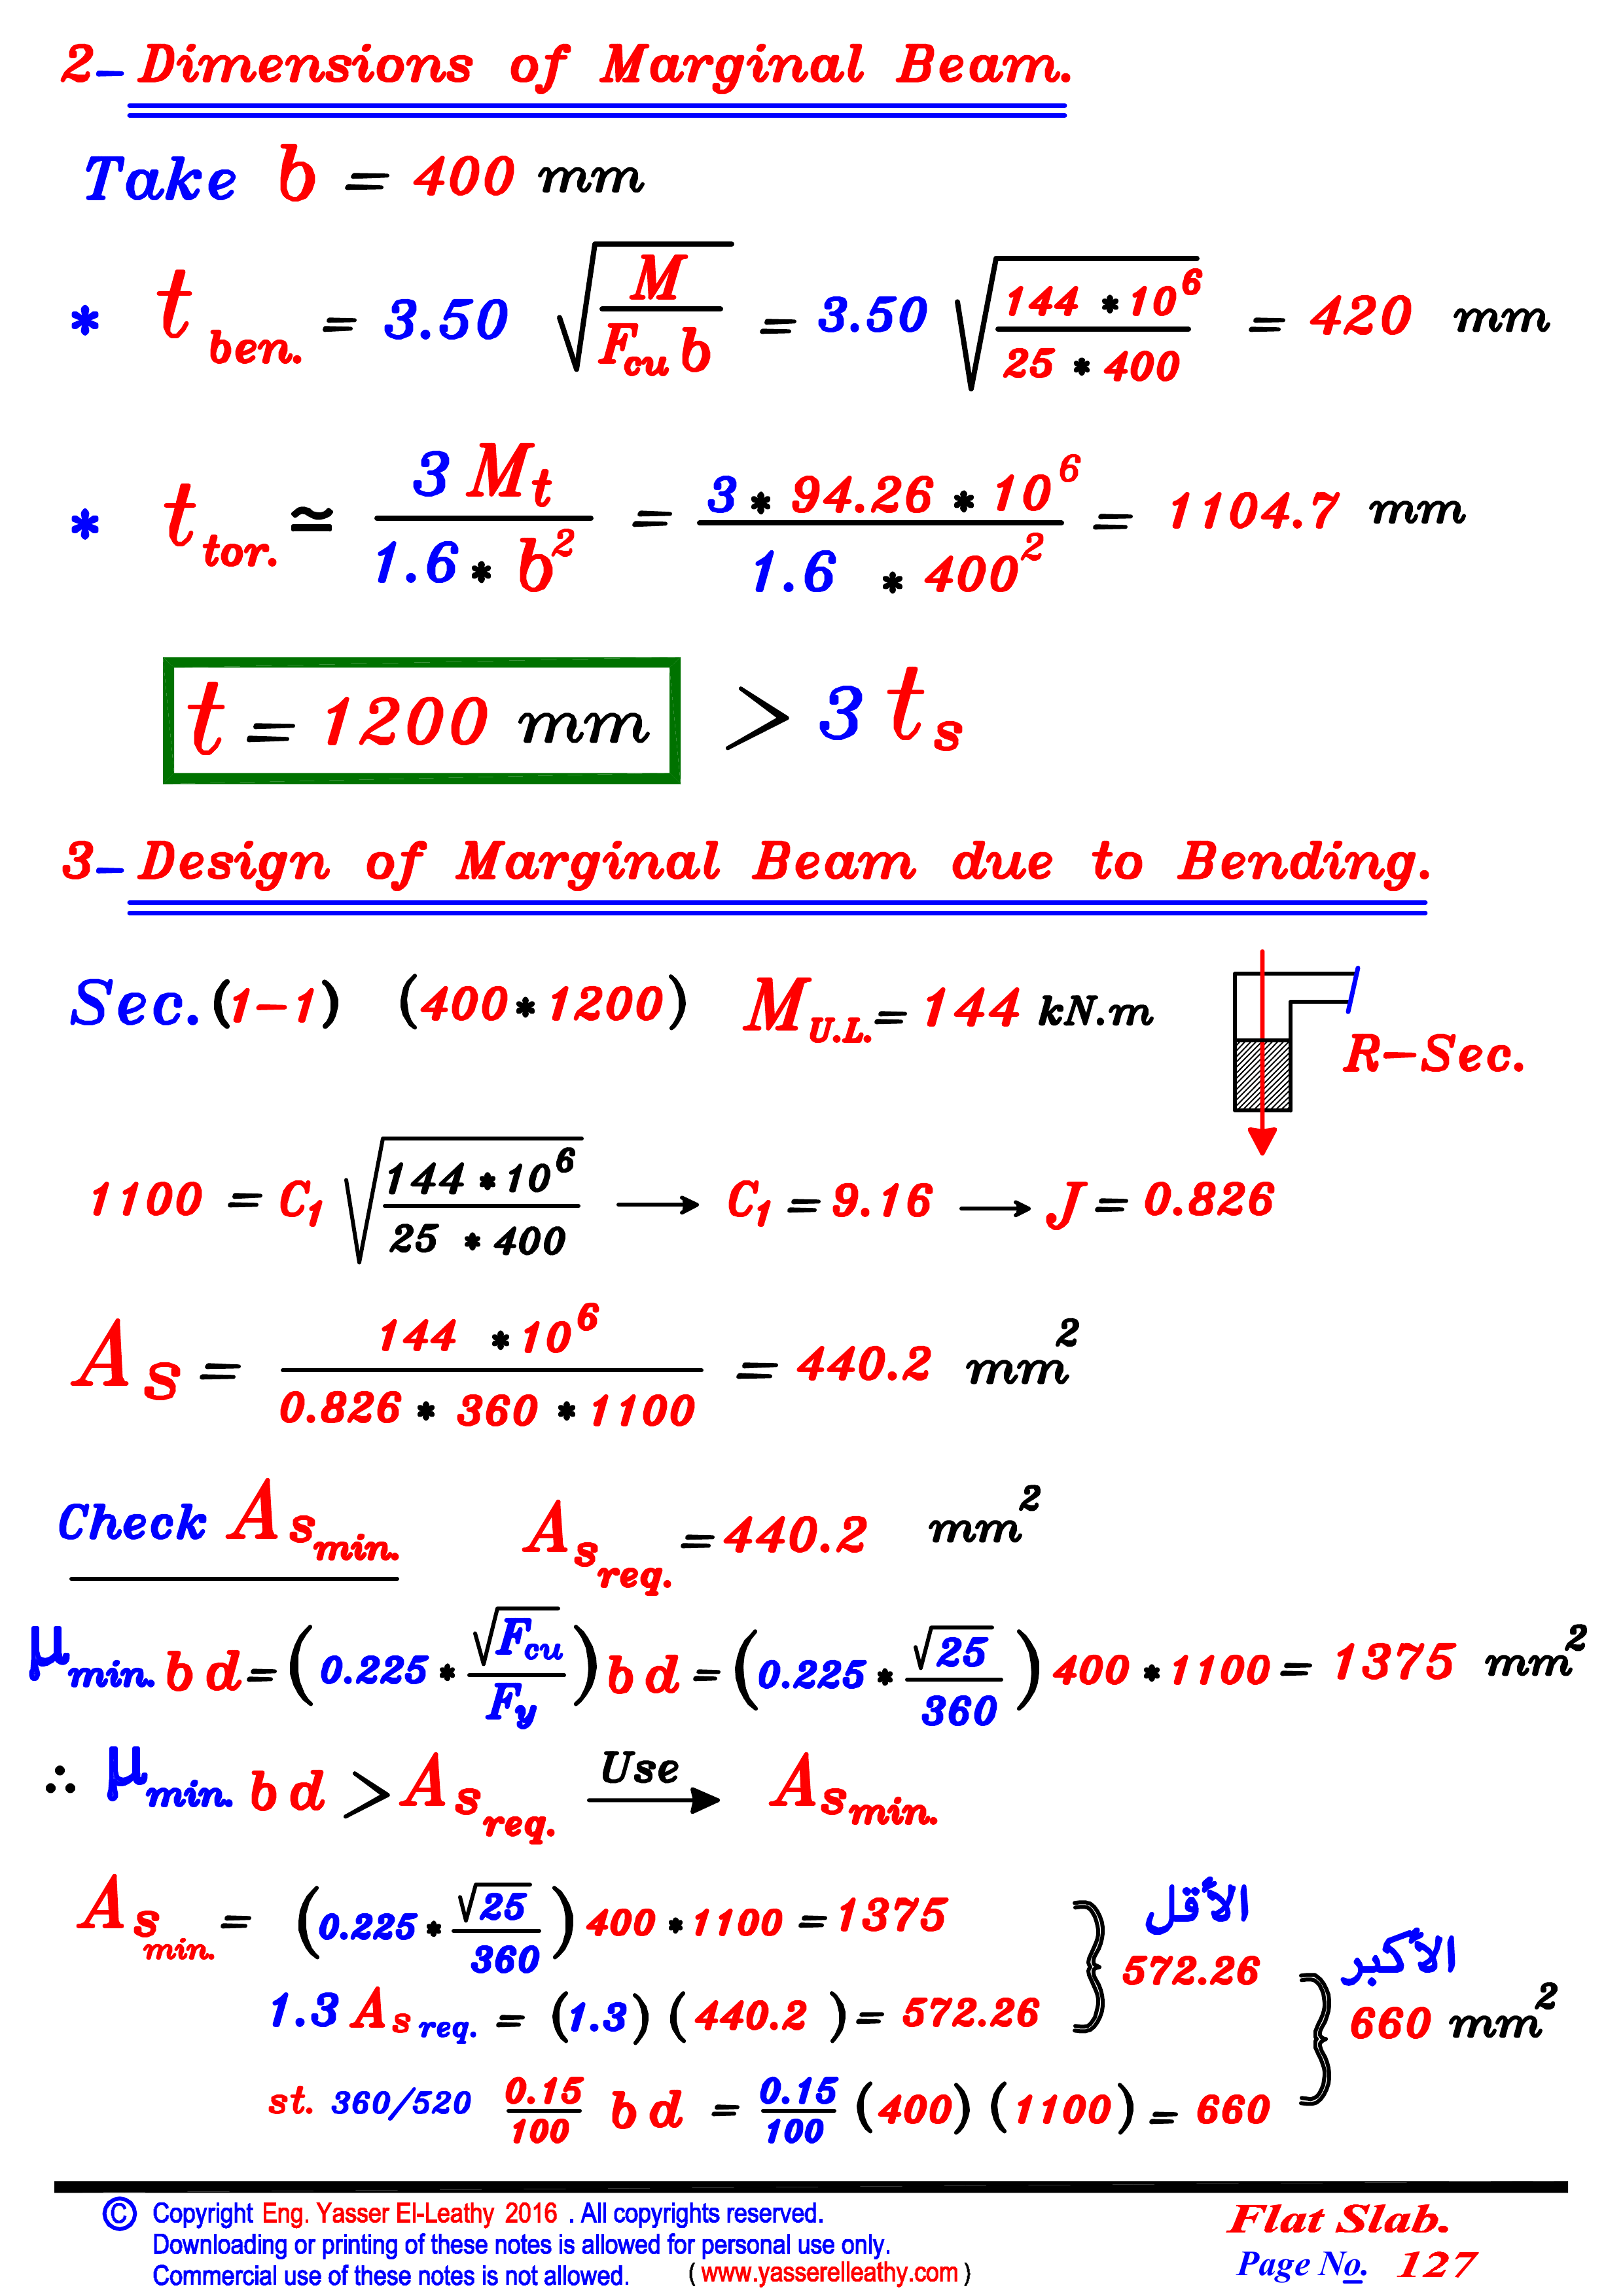 2- Dimensions of Marginal Beam.
Take b = 400 mm
* t ben. = 3.50 √(M / (Fcu b)) = 3.50 √((144 * 10^6) / (25 * 400)) = 420 mm
* t tor. ≃ (3 Mt) / (1.6 * b^2) = (3 * 94.26 * 10^6) / (1.6 * 400^2) = 1104.7 mm
t = 1200 mm > 3 ts
3- Design of Marginal Beam due to Bending.
Sec. (1-1) (400 * 1200) M U.L. = 144 kN.m
R-Sec.
1100 = C1 √((144 * 10^6) / (25 * 400)) → C1 = 9.16 → J = 0.826
As = (144 * 10^6) / (0.826 * 360 * 1100) = 440.2 mm^2
Check As min. As req. = 440.2 mm^2
μ min. b d = (0.225 * √Fcu / Fy) b d = (0.225 * √25 / 360) 400 * 1100 = 1375 mm^2
∴ μ min. b d > As req. Use → As min.
As min. = (0.225 * √25 / 360) 400 * 1100 = 1375
الأقل
572.26
1.3 As req. = (1.3) (440.2) = 572.26
الأكبر
660 mm^2
st. 360/520 0.15/100 b d = 0.15/100 (400) (1100) = 660
© Copyright Eng. Yasser El-Leathy 2016 . All copyrights reserved.
Downloading or printing of these notes is allowed for personal use only.
Commercial use of these notes is not allowed. ( www.yasserelleathy.com )
Flat Slab.
Page No. 127